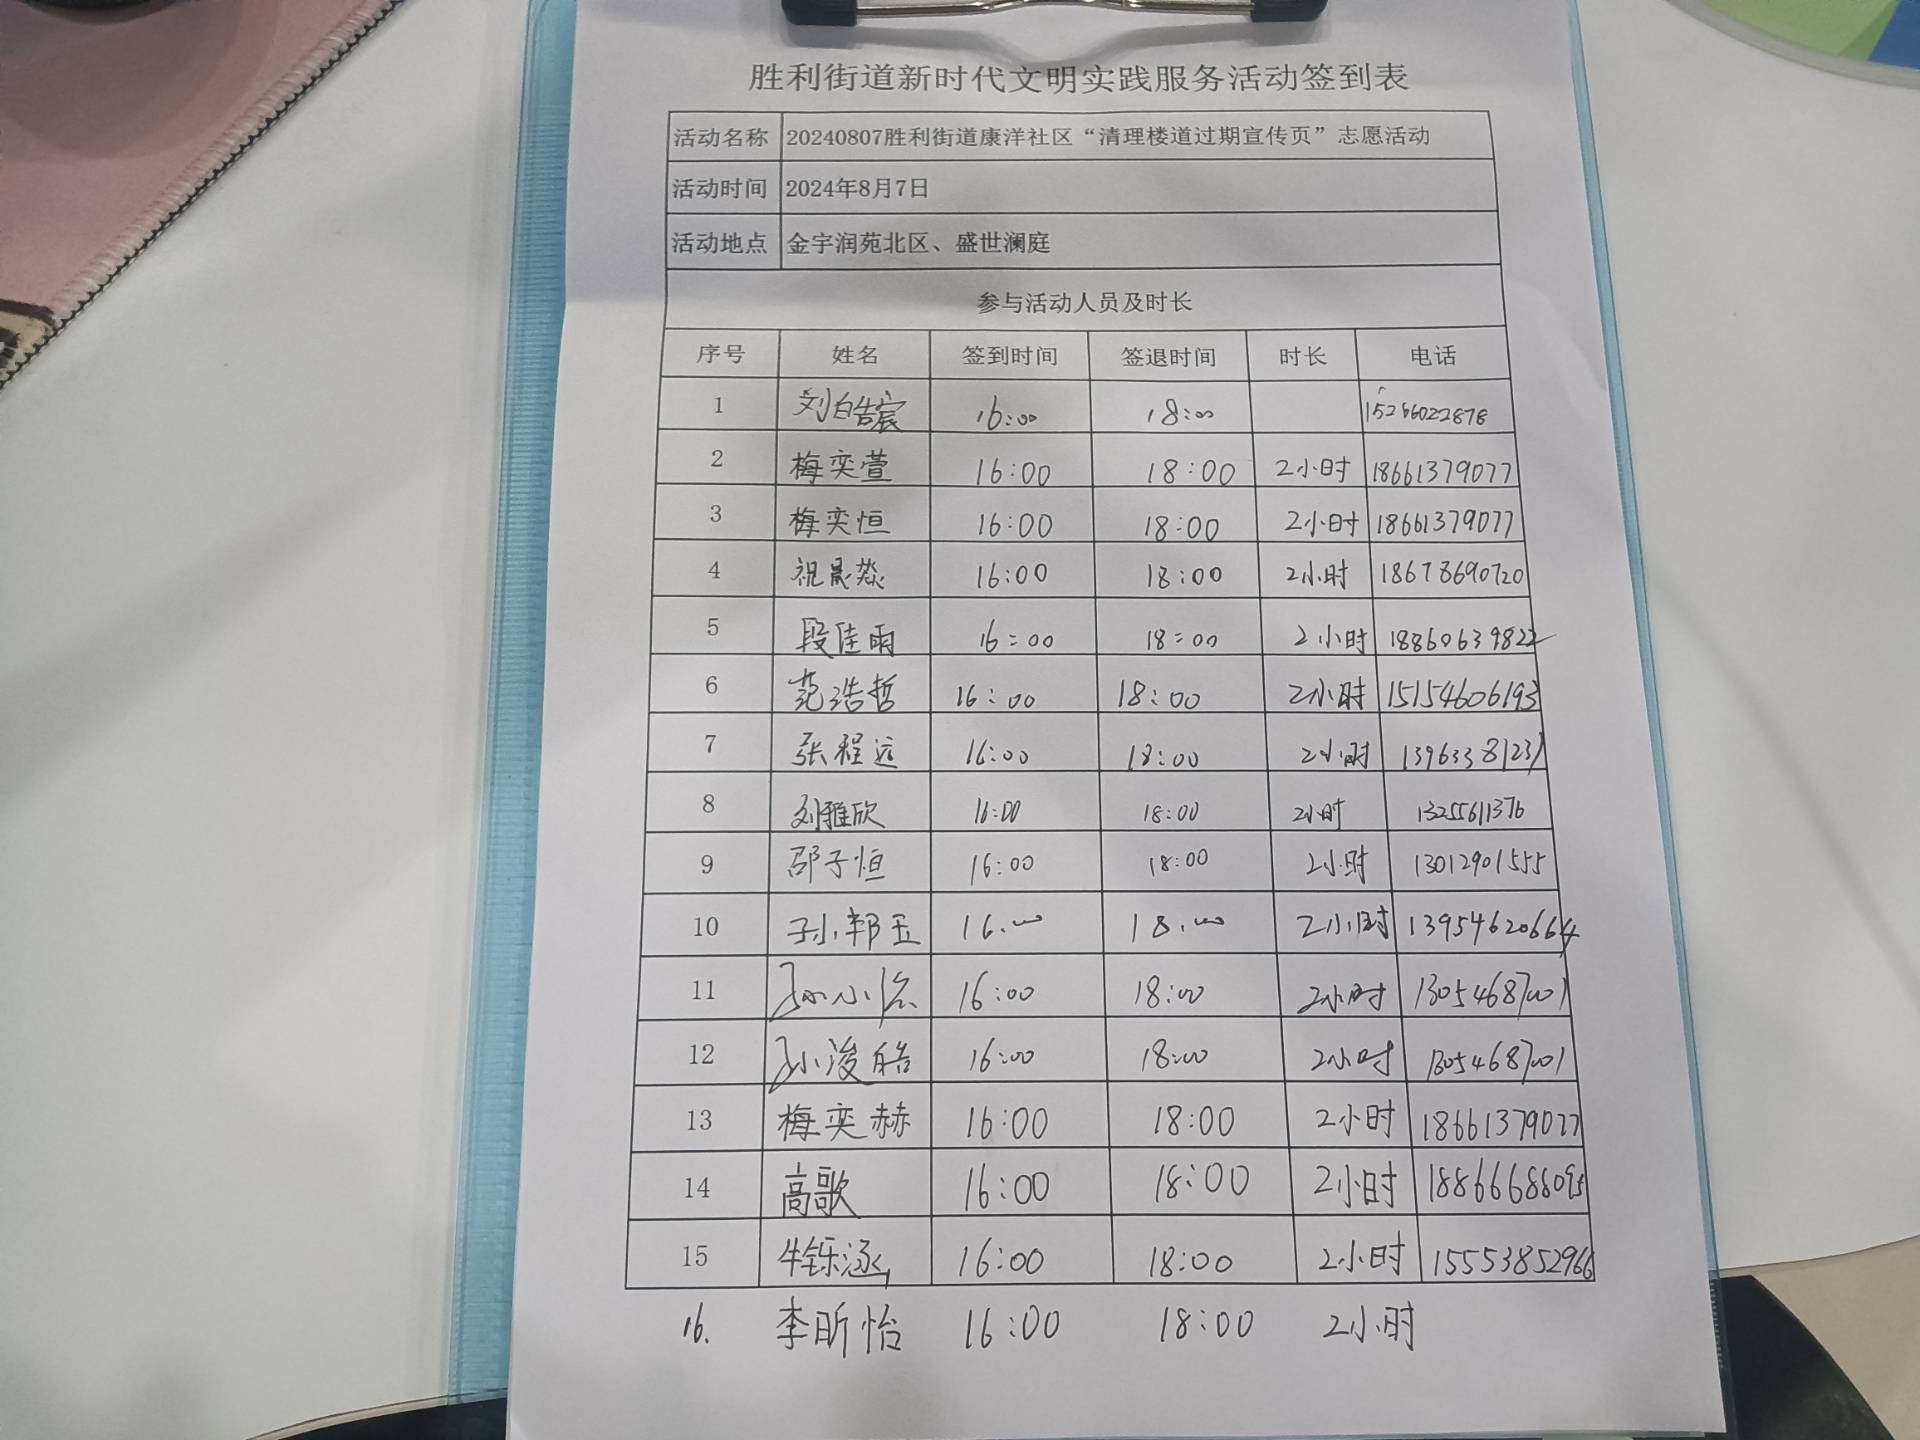 胜利街道新时代文明实践服务活动签到表
活动名称 20240807胜利街道康洋社区“清理楼道过期宣传页”志愿活动
活动时间 2024年8月7日
活动地点 金宇润苑北区、盛世澜庭
参与活动人员及时长
序号 姓名 签到时间 签退时间 时长 电话
1 16:00 18:00 15266022878
2 梅奕萱 16:00 18:00 2小时 18661379077
3 梅奕恒 16:00 18:00 2小时 18661379077
4 祝晟焱 16:00 18:00 2小时 18678690720
5 段佳雨 16:00 18:00 2小时 18860639822
6 范浩哲 16:00 18:00 2小时 15154606193
7 张程远 16:00 18:00 2小时 13963381231
8 刘雅欣 16:00 18:00 2小时 13255611376
9 邵子恒 16:00 18:00 2小时 13012901555
10 孙郡玉 16.00 18.00 2小时 13954620664
11 16:00 18:00 2小时 13054687001
12 孙浚皓 16:00 18:00 2小时 13054687001
13 梅奕赫 16:00 18:00 2小时 18661379077
14 高歌 16:00 18:00 2小时 18866688095
15 牛铄涵 16:00 18:00 2小时 15553852966
16. 李昕怡 16:00 18:00 2小时